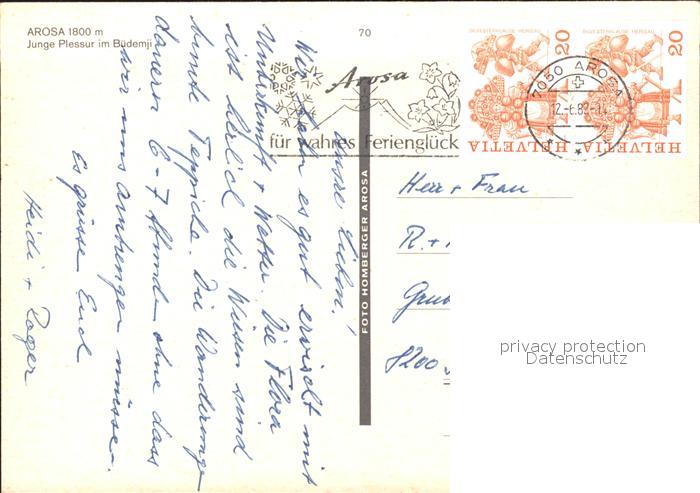 AROSA 1800 m
Junge Plessur im Büdemji
70
Arosa
für wahres Ferienglück
SILVESTERKLÄUSE HERISAU
20
HELVETIA
SILVESTERKLÄUSE HERISAU
20
HELVETIA
7050 AROSA
12.-6.89.-14
FOTO HOMBERGER AROSA
Unsre Lieben!
Wir haben es gut erwischt mit
Unterkunft + Wetter. Die Flora
ist herlich die Wiesen sind
bunte Teppiche. Die Wanderunge
dauern 6-7 Stunde ohne dass
wir uns anstrengen müssen.
Es grüsse Euch
Heidi + Roger
Herr + Frau
R. +
8200
privacy protection
Datenschutz